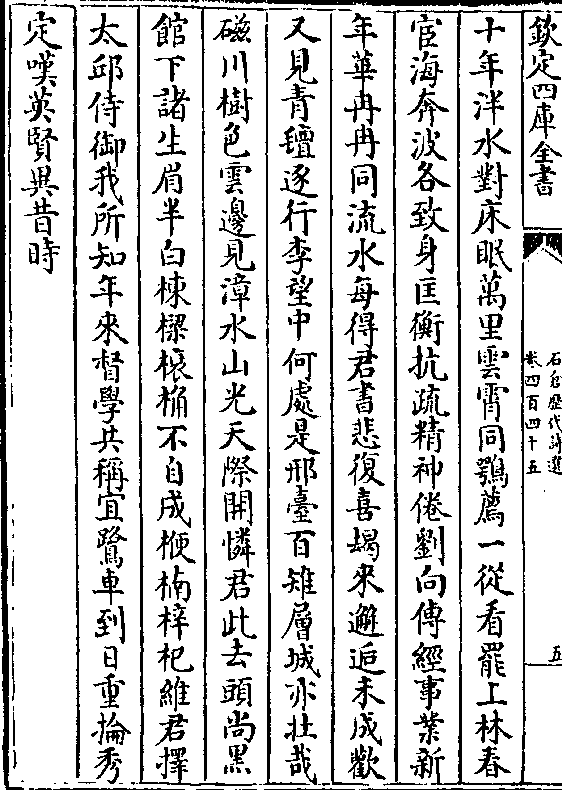 欽定四庫全書
石倉歷代詩選
卷四百四十五
五
十年泮水對床眠萬里雲霄同鶚薦一從看罷上林春
宦海奔波各致身匡衡抗疏精神倦劉向傳經事業新
年華冉冉同流水每得君書悲復喜朅來邂逅未成歡
又見青氊逐行李望中何處是邢臺百雉層城亦壯哉
磁川樹色雲邊見漳水山光天際開憐君此去頭尚黑
館下諸生眉半白棟樑榱桷不自成楩楠梓杞維君擇
太邱侍御我所知年來督學共稱宜驄車到日重掄秀
定嘆英賢異昔時